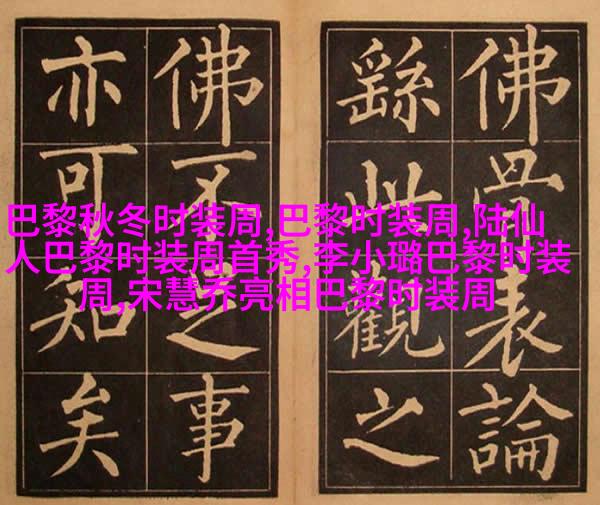 佛骨表論
繇此觀之
佛不事
亦可知矣
巴黎秋冬时装周,巴黎时装周,陆仙
人巴黎时装周首秀,李小璐巴黎时装
周,宋慧乔亮相巴黎时装周